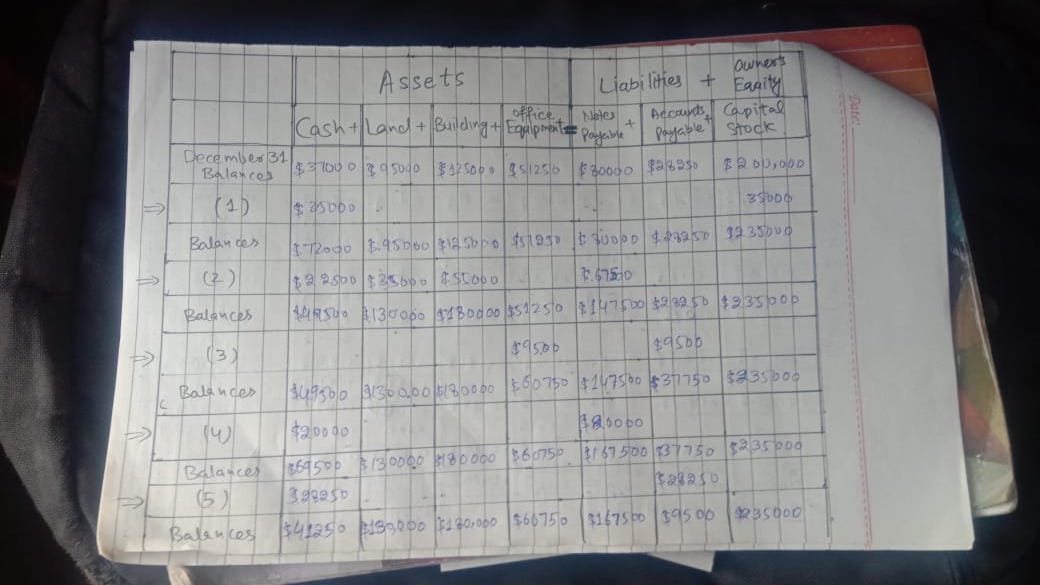 Assets Liabilities + Owner's Equity
Cash + Land + Building + Office Equipment = Notes Payable + Accounts Payable + Capital Stock
December 31 Balances $37000 $95000 $125000 $51250 $80000 $28250 $200,000
(1) $35000 35000
Balances $72000 $95000 $125000 $51250 $80000 $28250 $235000
(2) $22500 $35000 $55000 $67500
Balances $49500 $130000 $180000 $51250 $147500 $28250 $235000
(3) $9500 $9500
Balances $49500 $130000 $180000 $60750 $147500 $37750 $235000
(4) $20000 $20000
Balances $69500 $130000 $180000 $60750 $167500 $37750 $235000
(5) $28250 $28250
Balances $41250 $130,000 $180,000 $60750 $167500 $9500 $235000
Date: